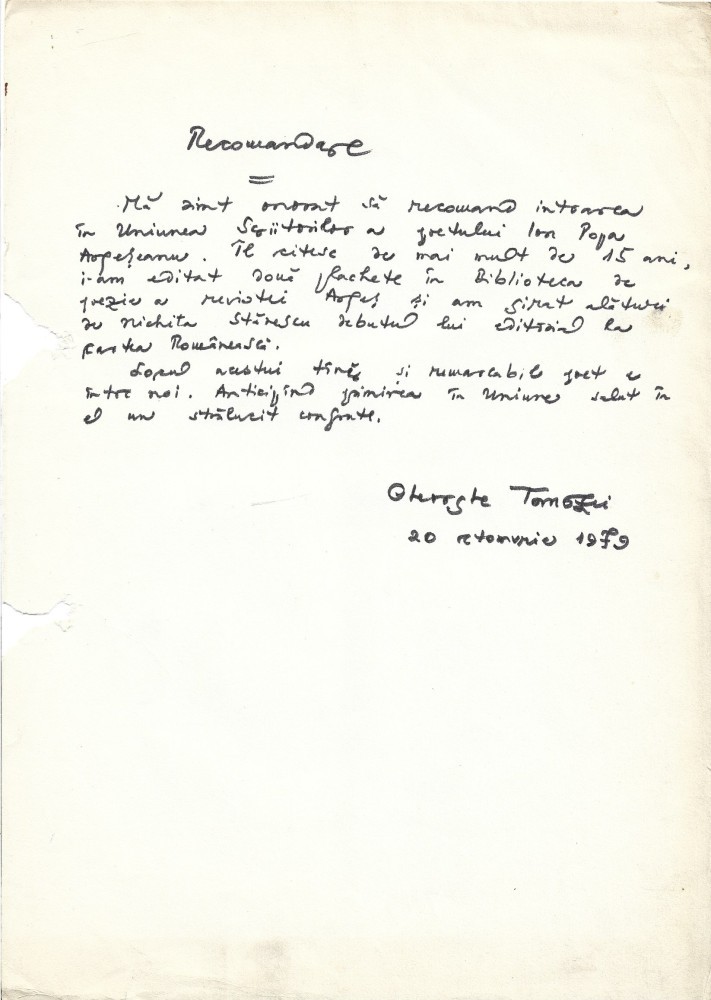 Recomandare
Mă simt onorat să recomand intrarea
în Uniunea Scriitorilor a poetului Ion Popa
Argeșeanu. Îl citesc de mai mult de 15 ani,
i-am editat două plachete în Biblioteca de
poezie a revistei Argeș și am girat alături
de Nichita Stănescu debutul lui editorial la
Cartea Românească.
Locul acestui tînăr și remarcabil poet e
între noi. Anticipînd primirea în Uniune salut în
el un strălucit confrate.
Gheorghe Tomozei
20 octomvrie 1979